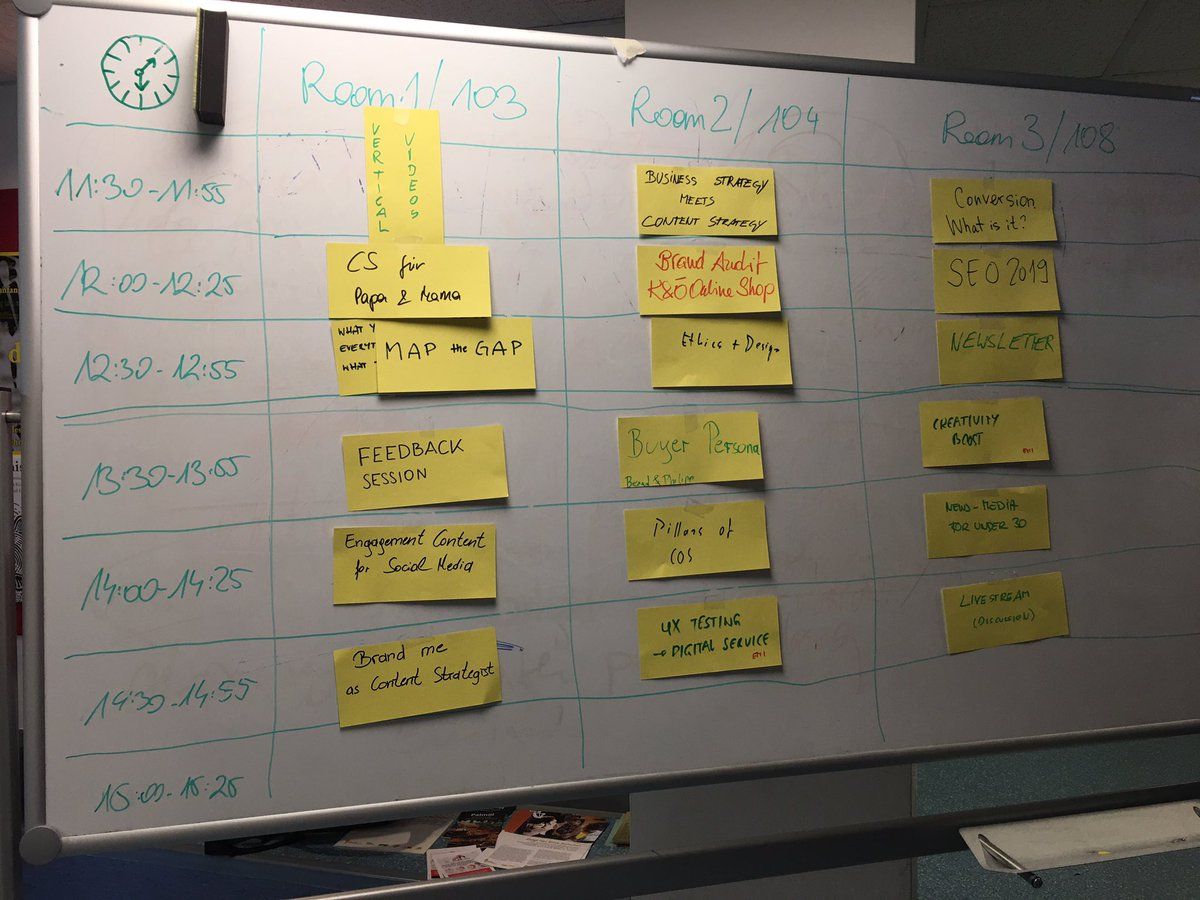 Room 1/103
Room 2/104
Room 3/108
11:30-11:55
VERTICAL
VIDEOS
BUSINESS STRATEGY
MEETS
CONTENT STRATEGY
Conversion
What is it?
12:00-12:25
CS für
Papa & Mama
Brand Audit
K&Ö Online Shop
SEO 2019
12:30-12:55
WHAT Y
EVERYT
WHAT
MAP the GAP
Ethics + Design
NEWSLETTER
13:30-13:55
FEEDBACK
SESSION
Buyer Persona
CREATIVITY
BOOST
14:00-14:25
Engagement Content
for Social Media
Pillars of
COS
NEWS-MEDIA
FOR UNDER 30
14:30-14:55
Brand me
as Content Strategist
UX TESTING
→ DIGITAL SERVICE
LIVESTREAM
(DISCUSSION)
15:00-15:25